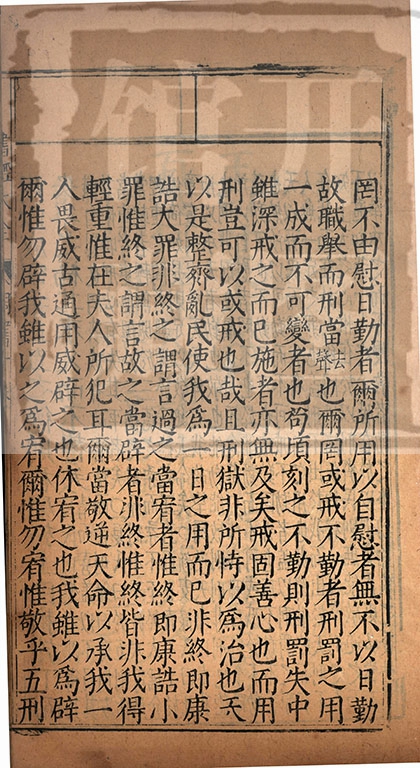 罔不由慰日勤者爾所用以自慰者無不以日勤
故職舉而刑當去聲也爾罔或戒不勤者刑罰之用
一成而不可變者也苟頃刻之不勤則刑罰失中
雖深戒之而已施者亦無及矣戒固善心也而用
刑豈可以或戒也哉且刑獄非所恃以爲治也天
以是整齊亂民使我爲一日之用而已非終即康
誥大罪非終之謂言過之當宥者惟終即康誥小
罪惟終之謂言故之當辟者非終惟終皆非我得
輕重惟在夫人所犯耳爾當敬逆天命以承我一
人畏威古通用威辟之也休宥之也我雖以爲辟
爾惟勿辟我雖以之爲宥爾惟勿宥惟敬乎五刑